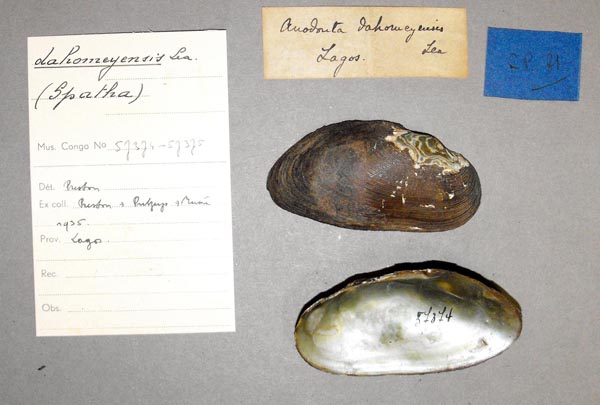 dahomeyensis Lea.
(Spatha)
Mus. Congo No 57374-57375
Dét. Preston
Ex coll. Preston &
1935.
Prov. Lagos.
Rec.
Obs.
Anodonta dahomeyensis
Lea
Lagos.
57374